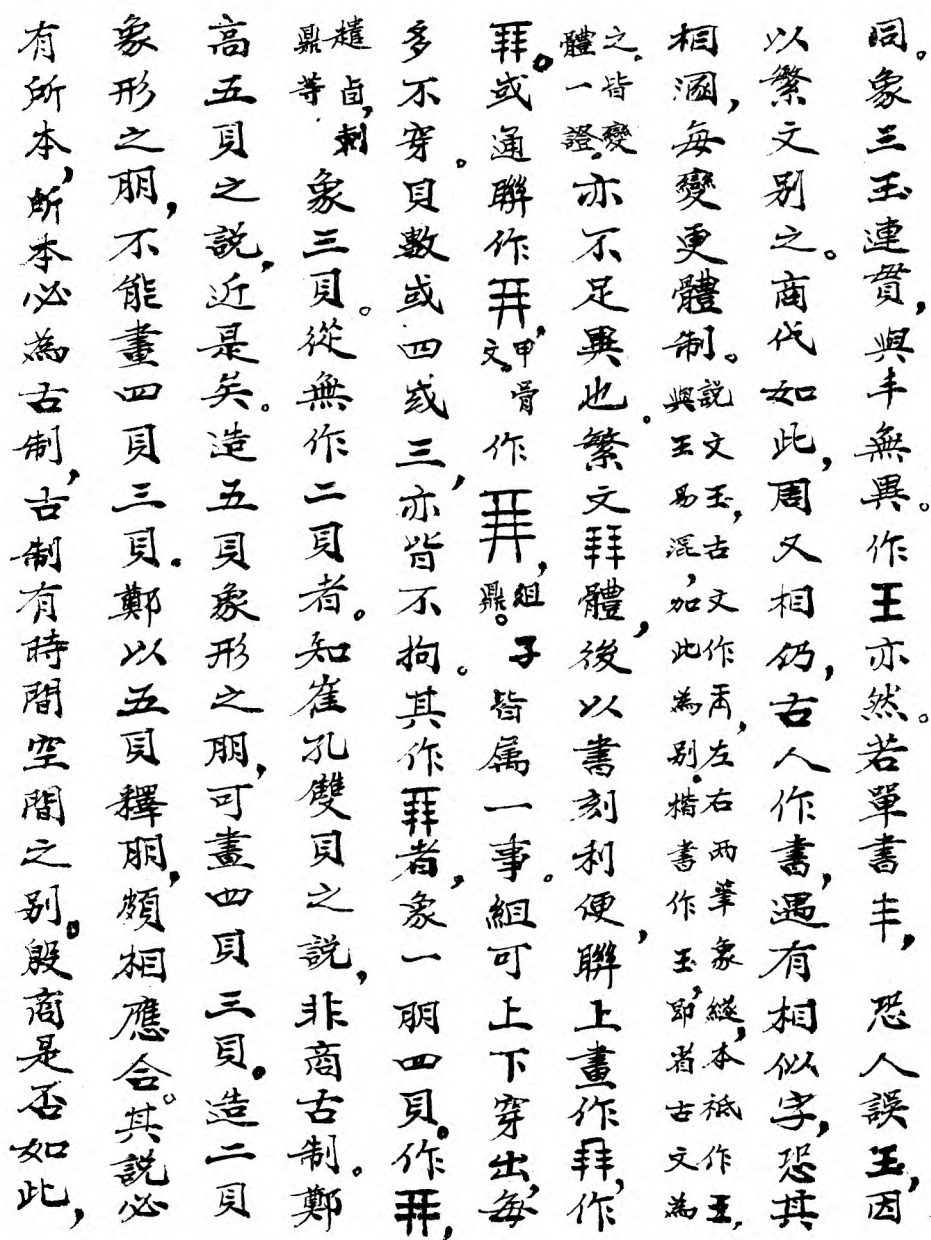 同。象三玉連貫，與丰無異。作王亦然。若單書丰，恐人誤玉，因
以繁文别之。商代如此，周又相仍，古人作書，遇有相似字，恐其
相溷，每變更體制。説文玉，古文作𠙖，左右两筆象繸，本祗作王，與王易混，加此為别。楷書作玉，即省古文為
之。皆變體一證。亦不足異也。繁文拜體，後以書刻利便，聯上畫作，作
。或通聯作，甲骨文。作，組子鼎。皆属一事。組可上下穿出，每
多不穿。貝數或四或三，亦皆不拘。其作者，象一朋四貝。作，
趞卣，刺鼎等象三貝。從無作二貝者。知崔孔雙貝之説，非商古制。鄭
高五貝之説，近是矣。造五貝象形之朋，可畫四貝三貝。造二貝
象形之朋，不能畫四貝三貝。鄭以五貝釋朋，頗相應合。其説必
有所本，所本必為古制，古制有時間空間之别。殷商是否如此，